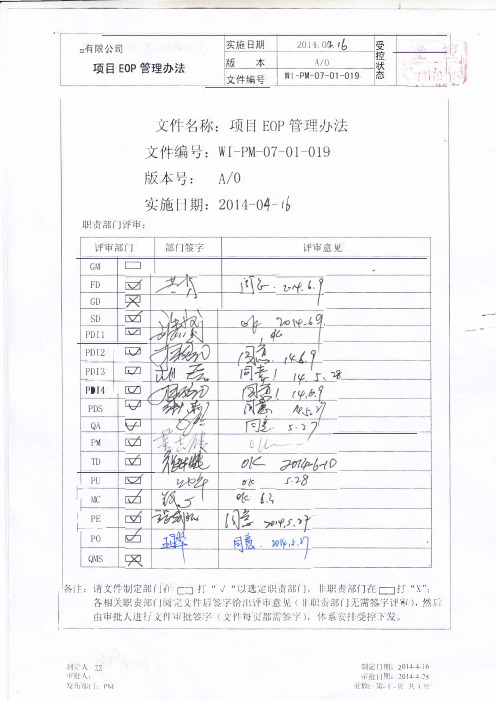 有限公司
项目 EOP 管理办法
实施日期 2014.04.16
版 本 A/0
文件编号 WI-PM-07-01-019
受控状态
文件名称：项目 EOP 管理办法
文件编号：WI-PM-07-01-019
版本号： A/0
实施日期：2014-04-16
职责部门评审：
评审部门 部门签字 评审意见
GM
FD ✓ 同意. 2014.6.9
GD ×
SD ✓ ok 2014.6.9
PDI1 ✓ ok
PDI2 ✓ 同意 14.6.9
PDI3 ✓ 同意！ 14.5.28
PDI4 ✓ 同意！ 14.6.9
PDS ✓ 同意 14.5.27
QA ✓ 同意. 5.27
PM ✓ OK
TD ✓ OK 2014-6-10
PU ✓ ok 5.28
MC ✓ ok 6.3
PE ✓ 同意 2014.5.27
PO ✓ 同意. 2014.5.27
QMS ×
备注：请文件制定部门在 打“√”以选定职责部门，非职责部门在 打“X”；
各相关职责部门阅完文件后签字给出评审意见（非职责部门无需签字评审），然后
由审批人进行文件审批签字（文件每页都需签字），体系安排受控下发。
制定人
审批人：
发布部门：PM
制定日期：2014-4-16
审批日期：2014-4-25
页数：第-1-页 共 3 页